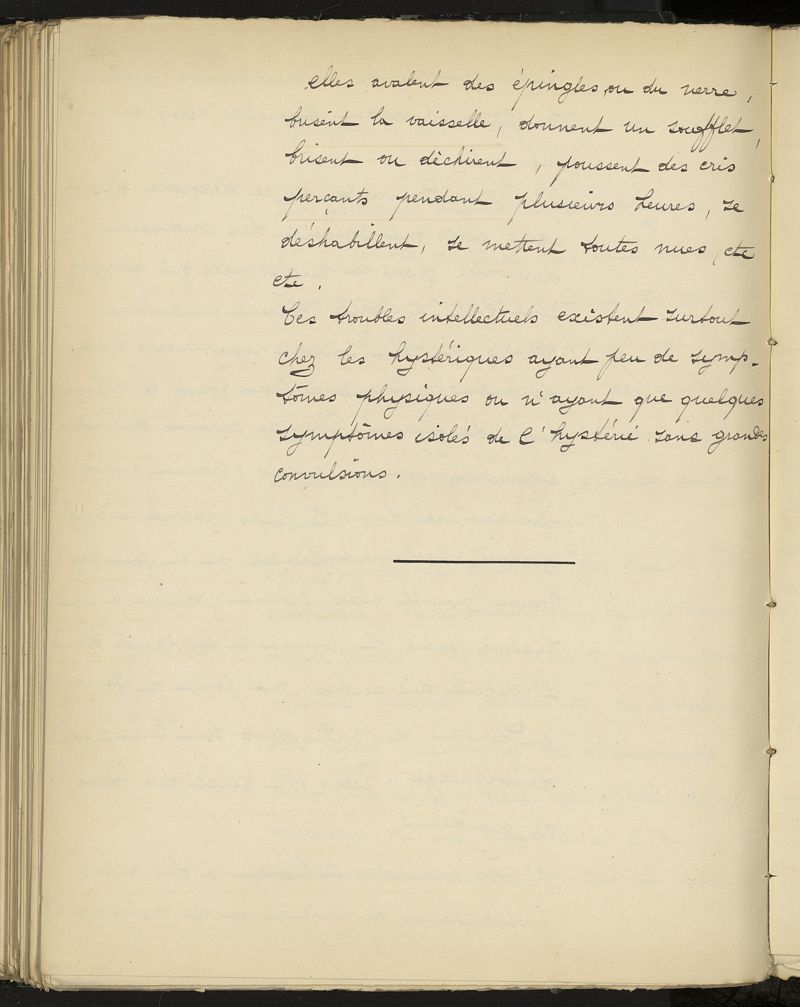 elles avalent des épingles ou du verre,
brisent la vaisselle, donnent un soufflet,
brisent ou déchirent, poussent des cris
perçants pendant plusieurs heures, se
déshabillent, se mettent toutes nues, etc
etc.
Ces troubles intellectuels existent surtout
chez les hystériques ayant peu de symp-
tômes physiques ou n'ayant que quelques
symptômes isolés de l'hystérié sans grandes
convulsions.